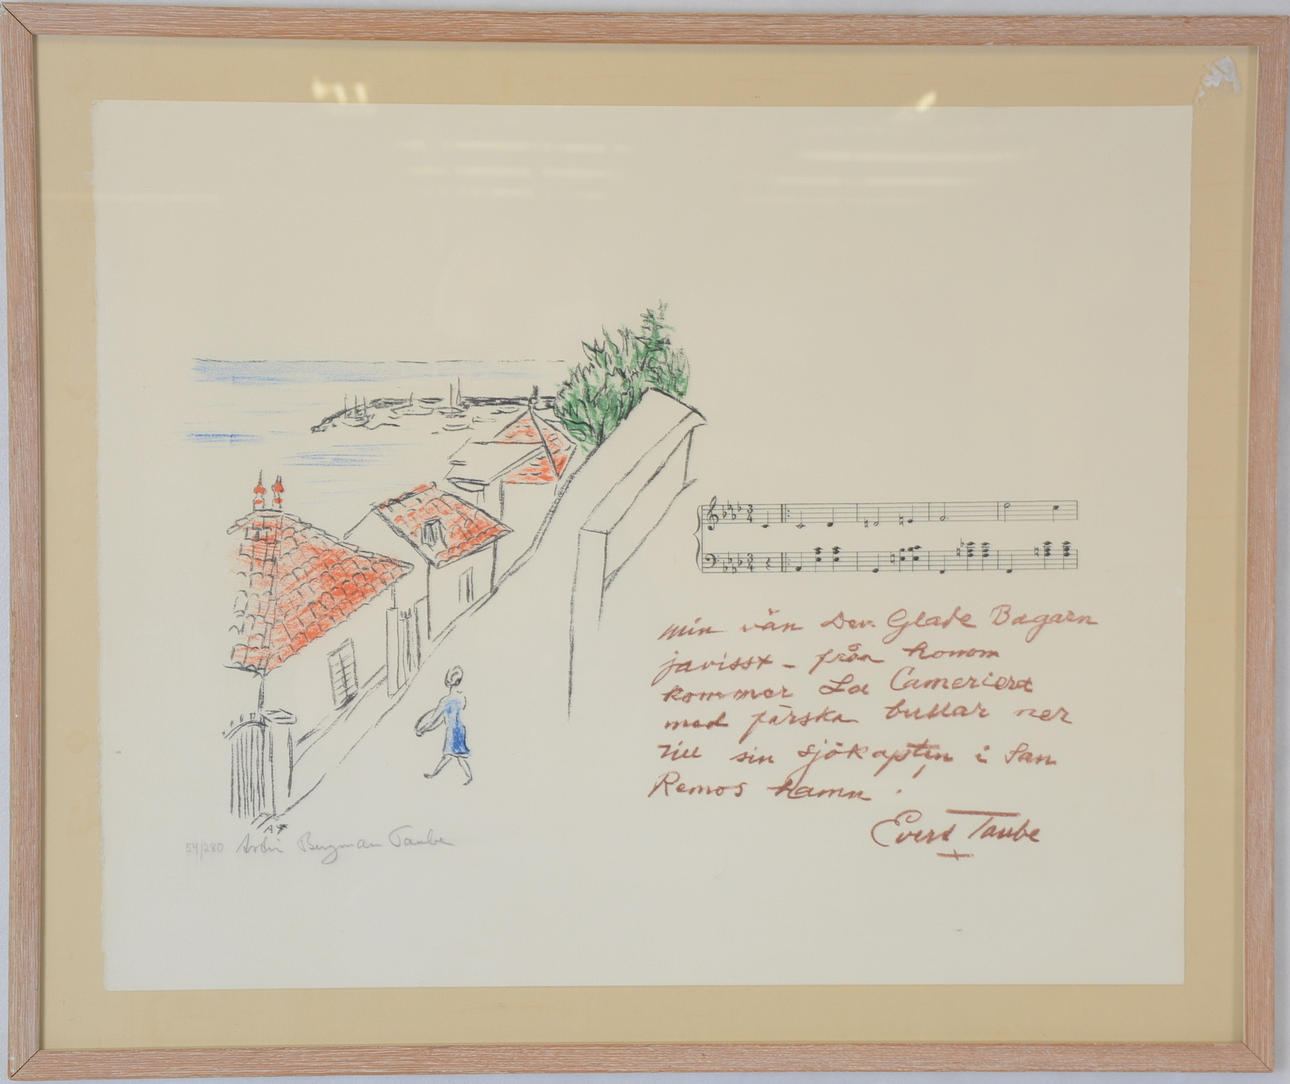 min vän Den Glade Bagarn
javisst - från honom
kommer La Cameriera
med färska bullar ner
till sin sjökapten i San
Remos hamn.
Evert Taube
AT
54/280 Astri Bergman Taube